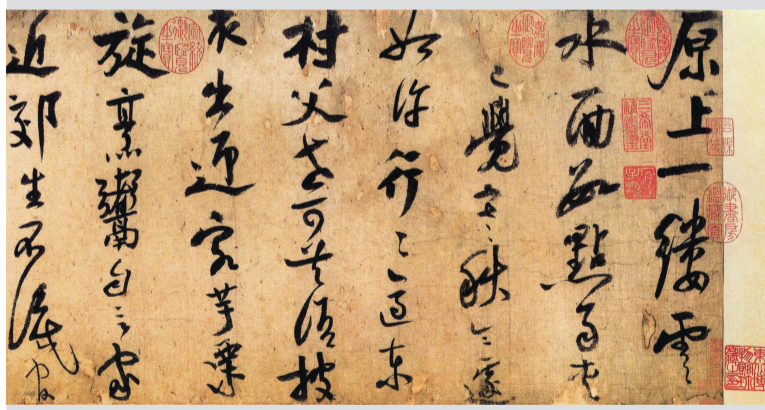 原上一縷雲
水面數點雨夾
覺寒秋令遽
如許行〻適東
村父老可共語披
衣出迎客芋栗
旋烹鬻自言家
近郊生不識官